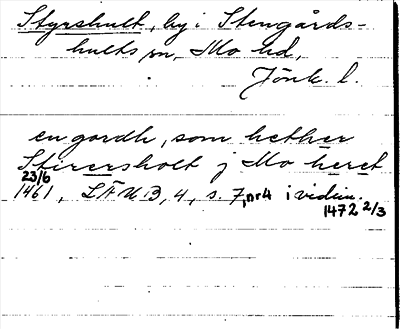 Styrshult, by i Stengårds-
hults sn, Mo hd,
Jönk. l.
en gordh, som hether
Stirersholt j Mo heret
23/6
1461, LÄUB, 4, s. 7, nr 4 i vidim.
1472 2/3